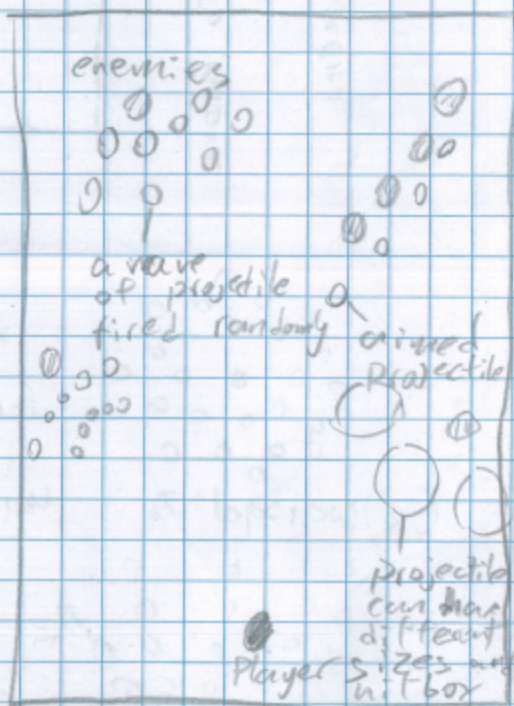 enemies
a wave
of projectile
fired randomly
aimed
Projectile
projectile
can
different
Player
sizes and
hitbox